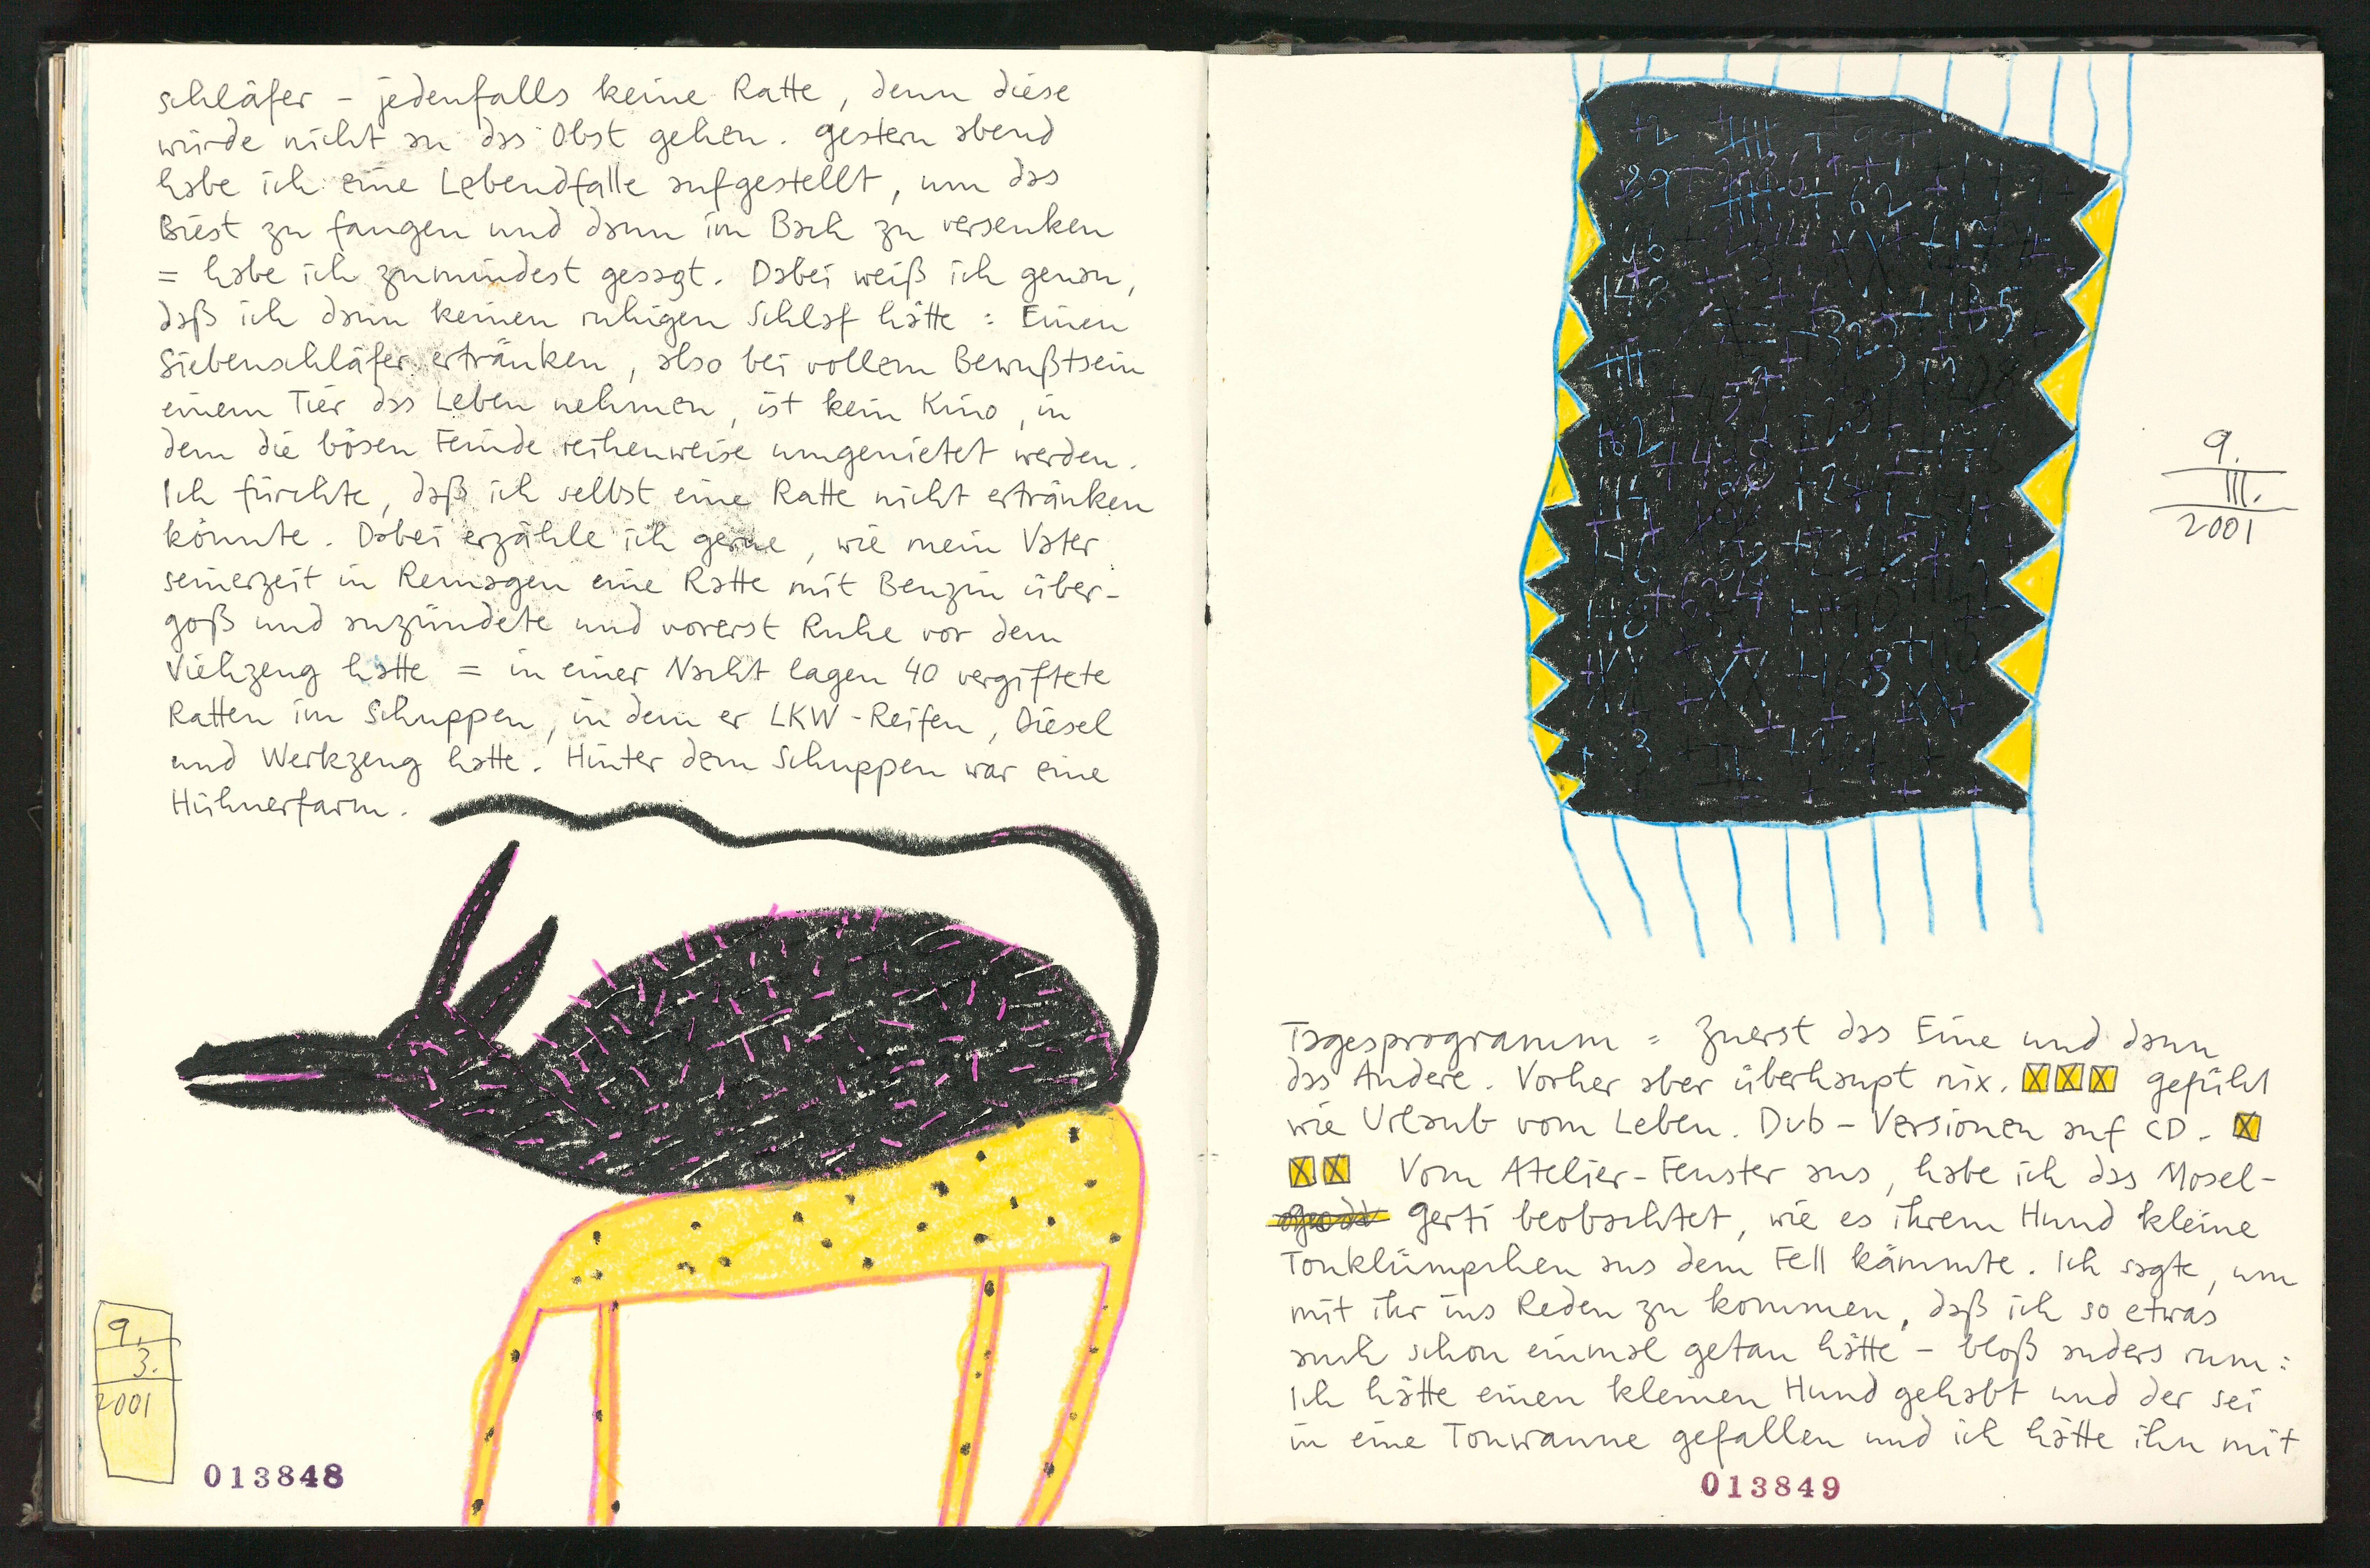 schläfer – jedenfalls keine Ratte, denn diese
würde nicht an das Obst gehen. gestern abend
habe ich eine Lebendfalle aufgestellt, um das
Biest zu fangen und dann im Bach zu versenken
= habe ich zumindest gesagt. Dabei weiß ich genau,
daß ich dann keinen ruhigen Schlaf hätte : Einen
Siebenschläfer ertränken, also bei vollem Bewußtsein
einem Tier das Leben nehmen, ist kein Kino, in
dem die bösen Feinde reihenweise umgenietet werden.
Ich fürchte, daß ich selbst eine Ratte nicht ertränken
könnte. Dabei erzähle ich gerne, wie mein Vater
seinerzeit in Remagen eine Ratte mit Benzin über-
goß und anzündete und vorerst Ruhe vor dem
Viehzeug hatte = in einer Nacht lagen 40 vergiftete
Ratten im Schuppen, in dem er LKW-Reifen, Diesel
und Werkzeug hatte. Hinter dem Schuppen war eine
Hühnerfarm.
9.
3.
2001
013848
9.
III.
2001
Tagesprogramm = Zuerst das Eine und dann
das Andere. Vorher aber überhaupt nix. X X X gefühl
wie Urlaub vom Leben. Dub-Versionen auf CD. X
X X Vom Atelier-Fenster aus, habe ich das Mosel-
gerti beobachtet, wie es ihrem Hund kleine
Tonklümpchen aus dem Fell kämmte. Ich sagte, um
mit ihr ins Reden zu kommen, daß ich so etwas
auch schon einmal getan hätte – bloß anders rum:
Ich hätte einen kleinen Hund gehabt und der sei
in eine Tonwanne gefallen und ich hätte ihn mit
013849